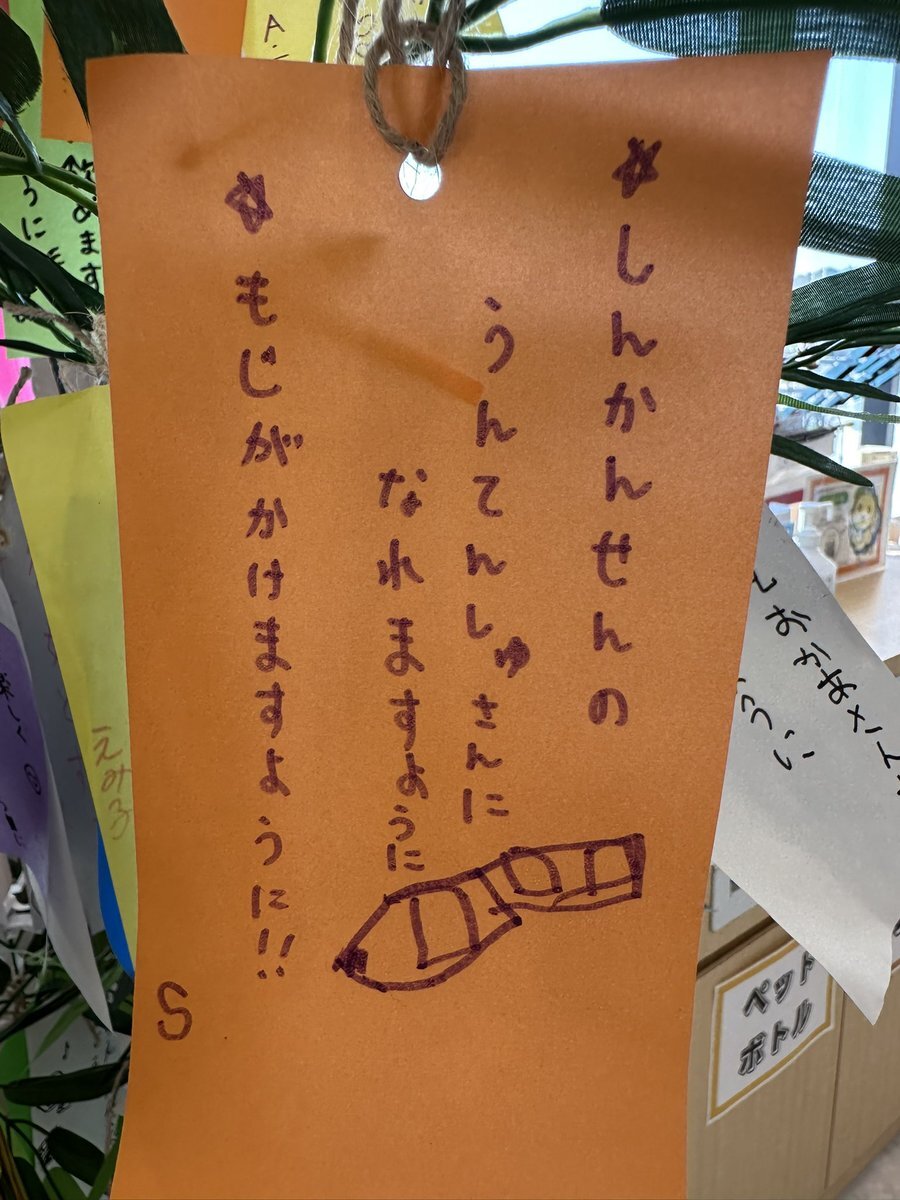 ☆しんかんせんの
うんてんしゅさんに
なれますように
☆もじがかけますように!!
S
A.
えみる
ペット
ボトル